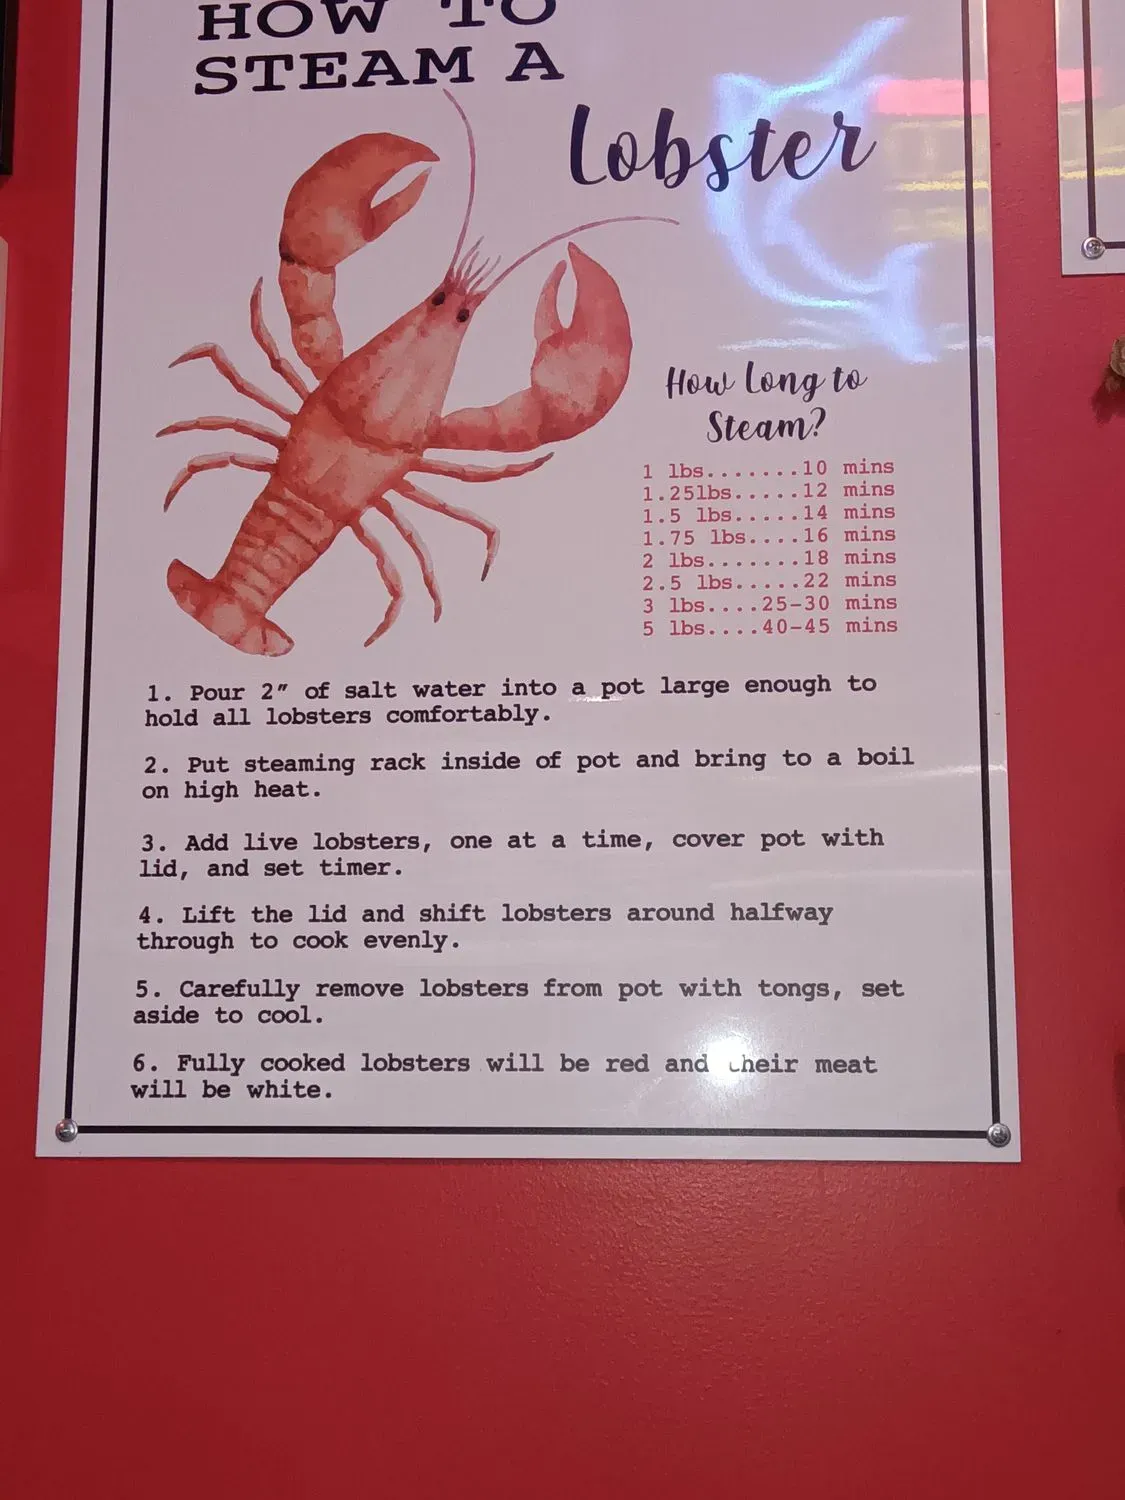 HOW TO
STEAM A
Lobster
How Long to
Steam?
1 lbs.......10 mins
1.25lbs.....12 mins
1.5 lbs.....14 mins
1.75 lbs....16 mins
2 lbs.......18 mins
2.5 lbs.....22 mins
3 lbs....25-30 mins
5 lbs....40-45 mins
1. Pour 2" of salt water into a pot large enough to
hold all lobsters comfortably.
2. Put steaming rack inside of pot and bring to a boil
on high heat.
3. Add live lobsters, one at a time, cover pot with
lid, and set timer.
4. Lift the lid and shift lobsters around halfway
through to cook evenly.
5. Carefully remove lobsters from pot with tongs, set
aside to cool.
6. Fully cooked lobsters will be red and their meat
will be white.